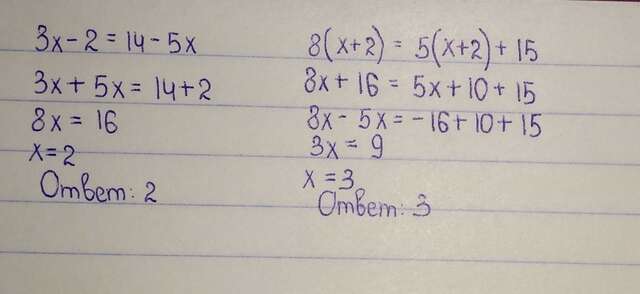 3x - 2 = 14 - 5x
3x + 5x = 14 + 2
8x = 16
x = 2
Ответ: 2
8(x+2) = 5(x+2) + 15
8x + 16 = 5x + 10 + 15
8x - 5x = -16 + 10 + 15
3x = 9
x = 3
Ответ: 3